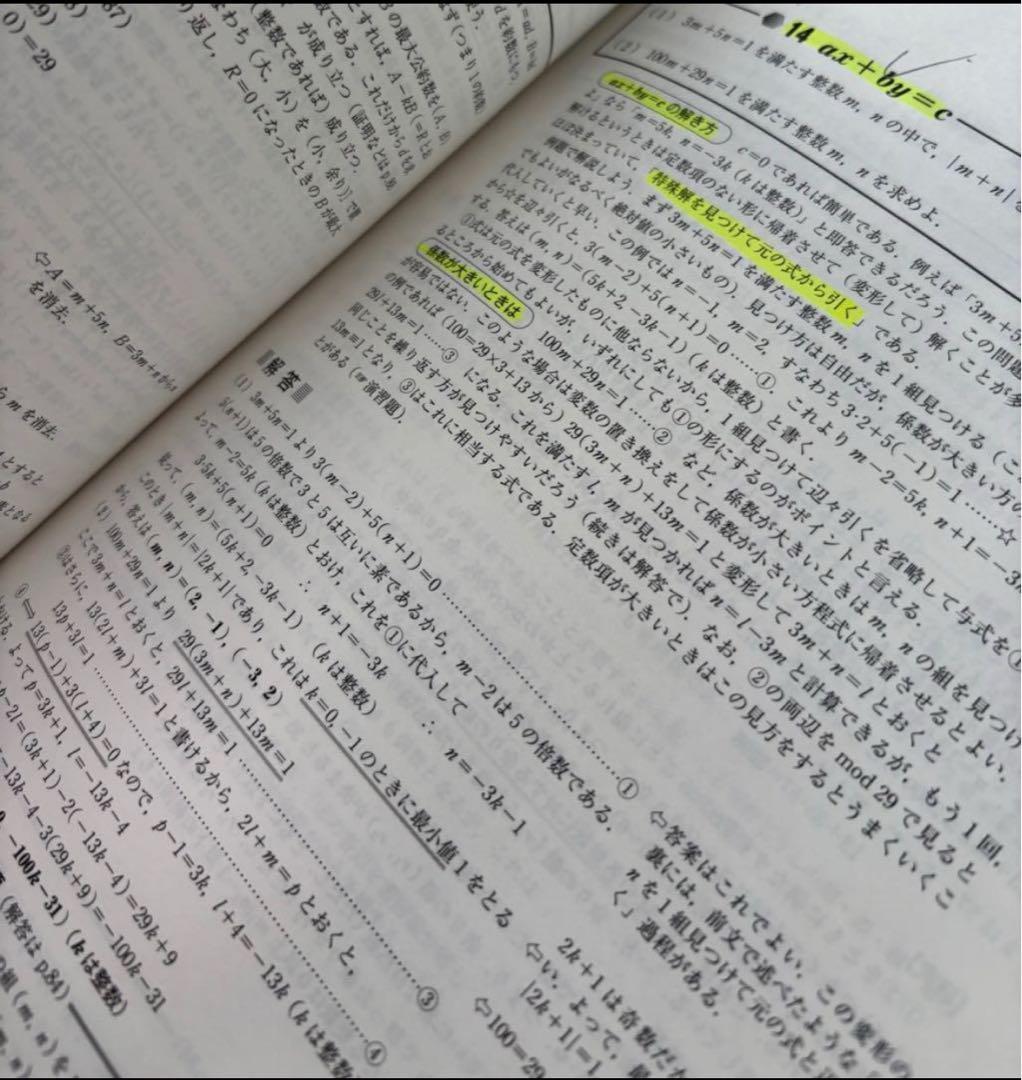 87)
0)=29
Bの最大公約数を(A, B)
とすれば, A-kB(=Rとお
数である. これだけからdを求
が成り立つ(証明などはp.
(整数であれば)成り立つ.
なわち(大, 小)を(小, 余り)]で置
返し, R=0になったときのBが最大
⇦A=m+5n, B=3m+nから
を消去.
らmを消去.
14 ax+by=c
(1) 3m+5n=1を満たす整数m, nの中で, |m+n|
(2) 100m+29n=1を満たす整数m, nを求めよ.
ax+by=cの解き方
c=0であれば簡単である. 例えば「3m+5
よ」なら「m=5k, n=-3k(kは整数)」と即答できるだろう. この問題
解けるというときは定数項のない形に帰着させて(変形して)解くことが多
ほぼ決まっていて「特殊解を見つけて元の式から引く」である.
例題で解説しよう. まず3m+5n=1を満たす整数m, nを1組見つける(こ
でもよいがなるべく絶対値の小さいもの). 見つけ方は自由だが, 係数が大きい方の
代入していくと早い. この例ではn=-1, m=2, すなわち3・2+5(-1)=1……☆
から☆を辺々引くと, 3(m-2)+5(n+1)=0……①. これよりm-2=5k, n+1=-3
する. 答えは(m, n)=(5k+2, -3k-1)(kは整数)と書く.
①式は元の式を変形したものに他ならないから, 1組見つけて辺々引くを省略して与式を①
るところから始めてもよいが, いずれにしても①の形にするのがポイントと言える.
係数が大きいときは
100m+29n=1……② など, 係数が大きいときはm, nの組を見つけ
が容易ではない. このような場合は変数の置き換えをして係数が小さい方程式に帰着させるとよい.
の例であれば(100=29×3+13から) 29(3m+n)+13m=1と変形して3m+n=lとおくと
29l+13m=1……③ になる. これを満たすl, mが見つかればn=l-3mと計算できるが, もう1回,
同じことを繰り返す方が見つけやすいだろう(続きは解答で). なお, ②の両辺をmod 29で見ると
13m≡1となり, ③はこれに相当する式である. 定数項が大きいときはこの見方をするとうまくいくこ
とがある(☞演習題).
解答
(1) 3m+5n=1より3(m-2)+5(n+1)=0……①
5(n+1)は5の倍数で3と5は互いに素であるから, m-2は5の倍数である.
よって, m-2=5k(kは整数)とおけ, これを①に代入して
3・5k+5(n+1)=0 ∴ n+1=-3k ∴ n=-3k-1
従って, (m, n)=(5k+2, -3k-1) (kは整数)
このとき|m+n|=|2k+1|であり, これはk=0, -1のときに最小値1をとる
から, 答えは(m, n)=(2, -1), (-3, 2)
(2) 100m+29n=1より, 29(3m+n)+13m=1
ここで3m+n=lとおくと, 29l+13m=1……③
③はさらに, 13(2l+m)+3l=1と書けるから, 2l+m=pとおくと,
13p+3l=1……④
④⟺13(p-1)+3(l+4)=0なので, p-1=3k, l+4=-13k(kは整数
おける. よってp=3k+1, l=-13k-4
p-2l=(3k+1)-2(-13k-4)=29k+9
-13k-4-3(29k+9)=-100k-31
-100k-31) (kは整数)
(解答はp.84)
の組(m, n)を
⇦答案はこれでよい. この変形の
裏には, 前文で述べたような
nを1組見つけて元の式と
く」過程がある.
2k+1は奇数だか
⇦い. よって,
|2k+1|=1
⇦100=29